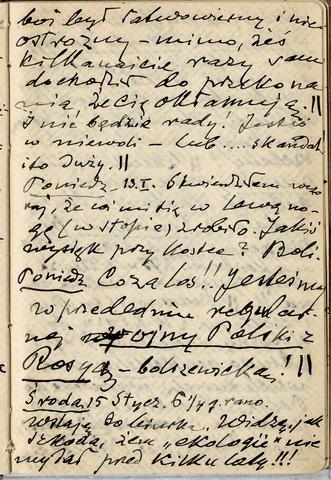 boś był łatwowierny i nie
ostrożny – mimo, żeś
kilkanaście razy sam
dochodził do przekona
nia, że cię okłamują.!!
I nie będzie rady! Jesteś
w niewoli – lub.... skandal
i to duży.!!
Poniedz. 13.I. Stwierdziłem wczo
raj, że coś mi się w lewą no-
gę (w stopie) zrobiło. Jakiś
przy kostce? Boli.
Poniedz Co za los!! Jesteśmy
w przededniu regular
nej wojny Polski z
Rosyą – bolszewicką!!!
Środa, 15 Stycz. 6 1/4 g. rano.
Wstaję do biurka. Widzę, jak
szkoda, żem „ekologie" nie
wydał przed kilku laty!!!